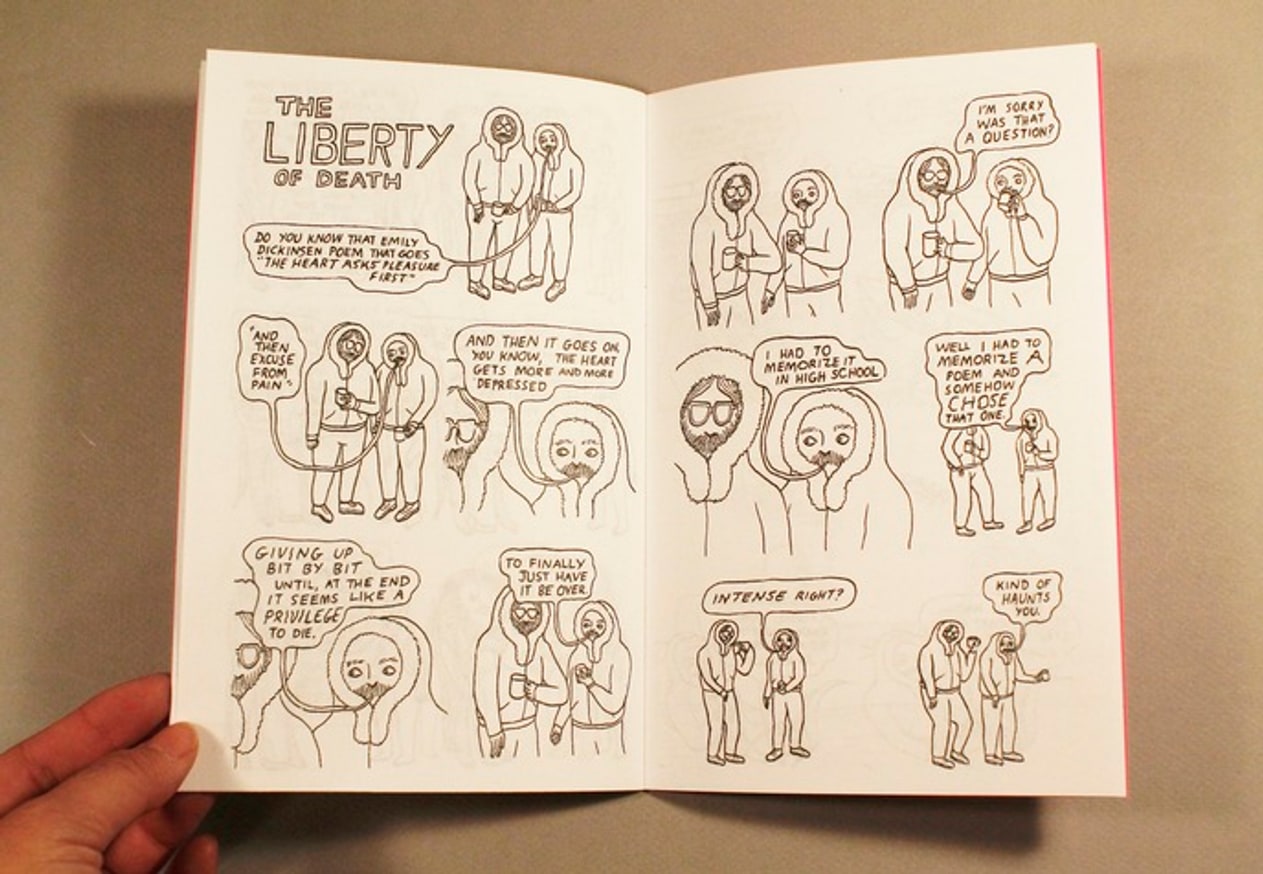 THE
LIBERTY
OF DEATH
DO YOU KNOW THAT EMILY
DICKINSEN POEM THAT GOES
"THE HEART ASKS PLEASURE
FIRST"
"AND
THEN
EXCUSE
FROM
PAIN"
AND THEN IT GOES ON,
YOU KNOW, THE HEART
GETS MORE AND MORE
DEPRESSED
GIVING UP
BIT BY BIT
UNTIL, AT THE END
IT SEEMS LIKE A
PRIVILEGE
TO DIE.
TO FINALLY
JUST HAVE
IT BE OVER.
I'M SORRY
WAS THAT
A QUESTION?
I HAD TO
MEMORIZE IT
IN HIGH SCHOOL
WELL I HAD TO
MEMORIZE A
POEM AND
SOMEHOW
CHOSE
THAT ONE.
INTENSE RIGHT?
KIND OF
HAUNTS
YOU.